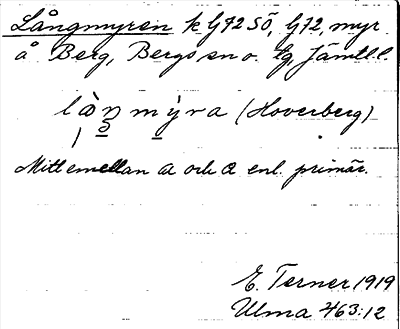 Långmyren k G72 SÖ, G72, myr
å Berg, Bergs sn o. tg, Jämtl. l.
làŋmỳra (Hoverberg)
Mitt emellan a och ɑ enl. primär.
E. Terner 1919
Ulma 463:12